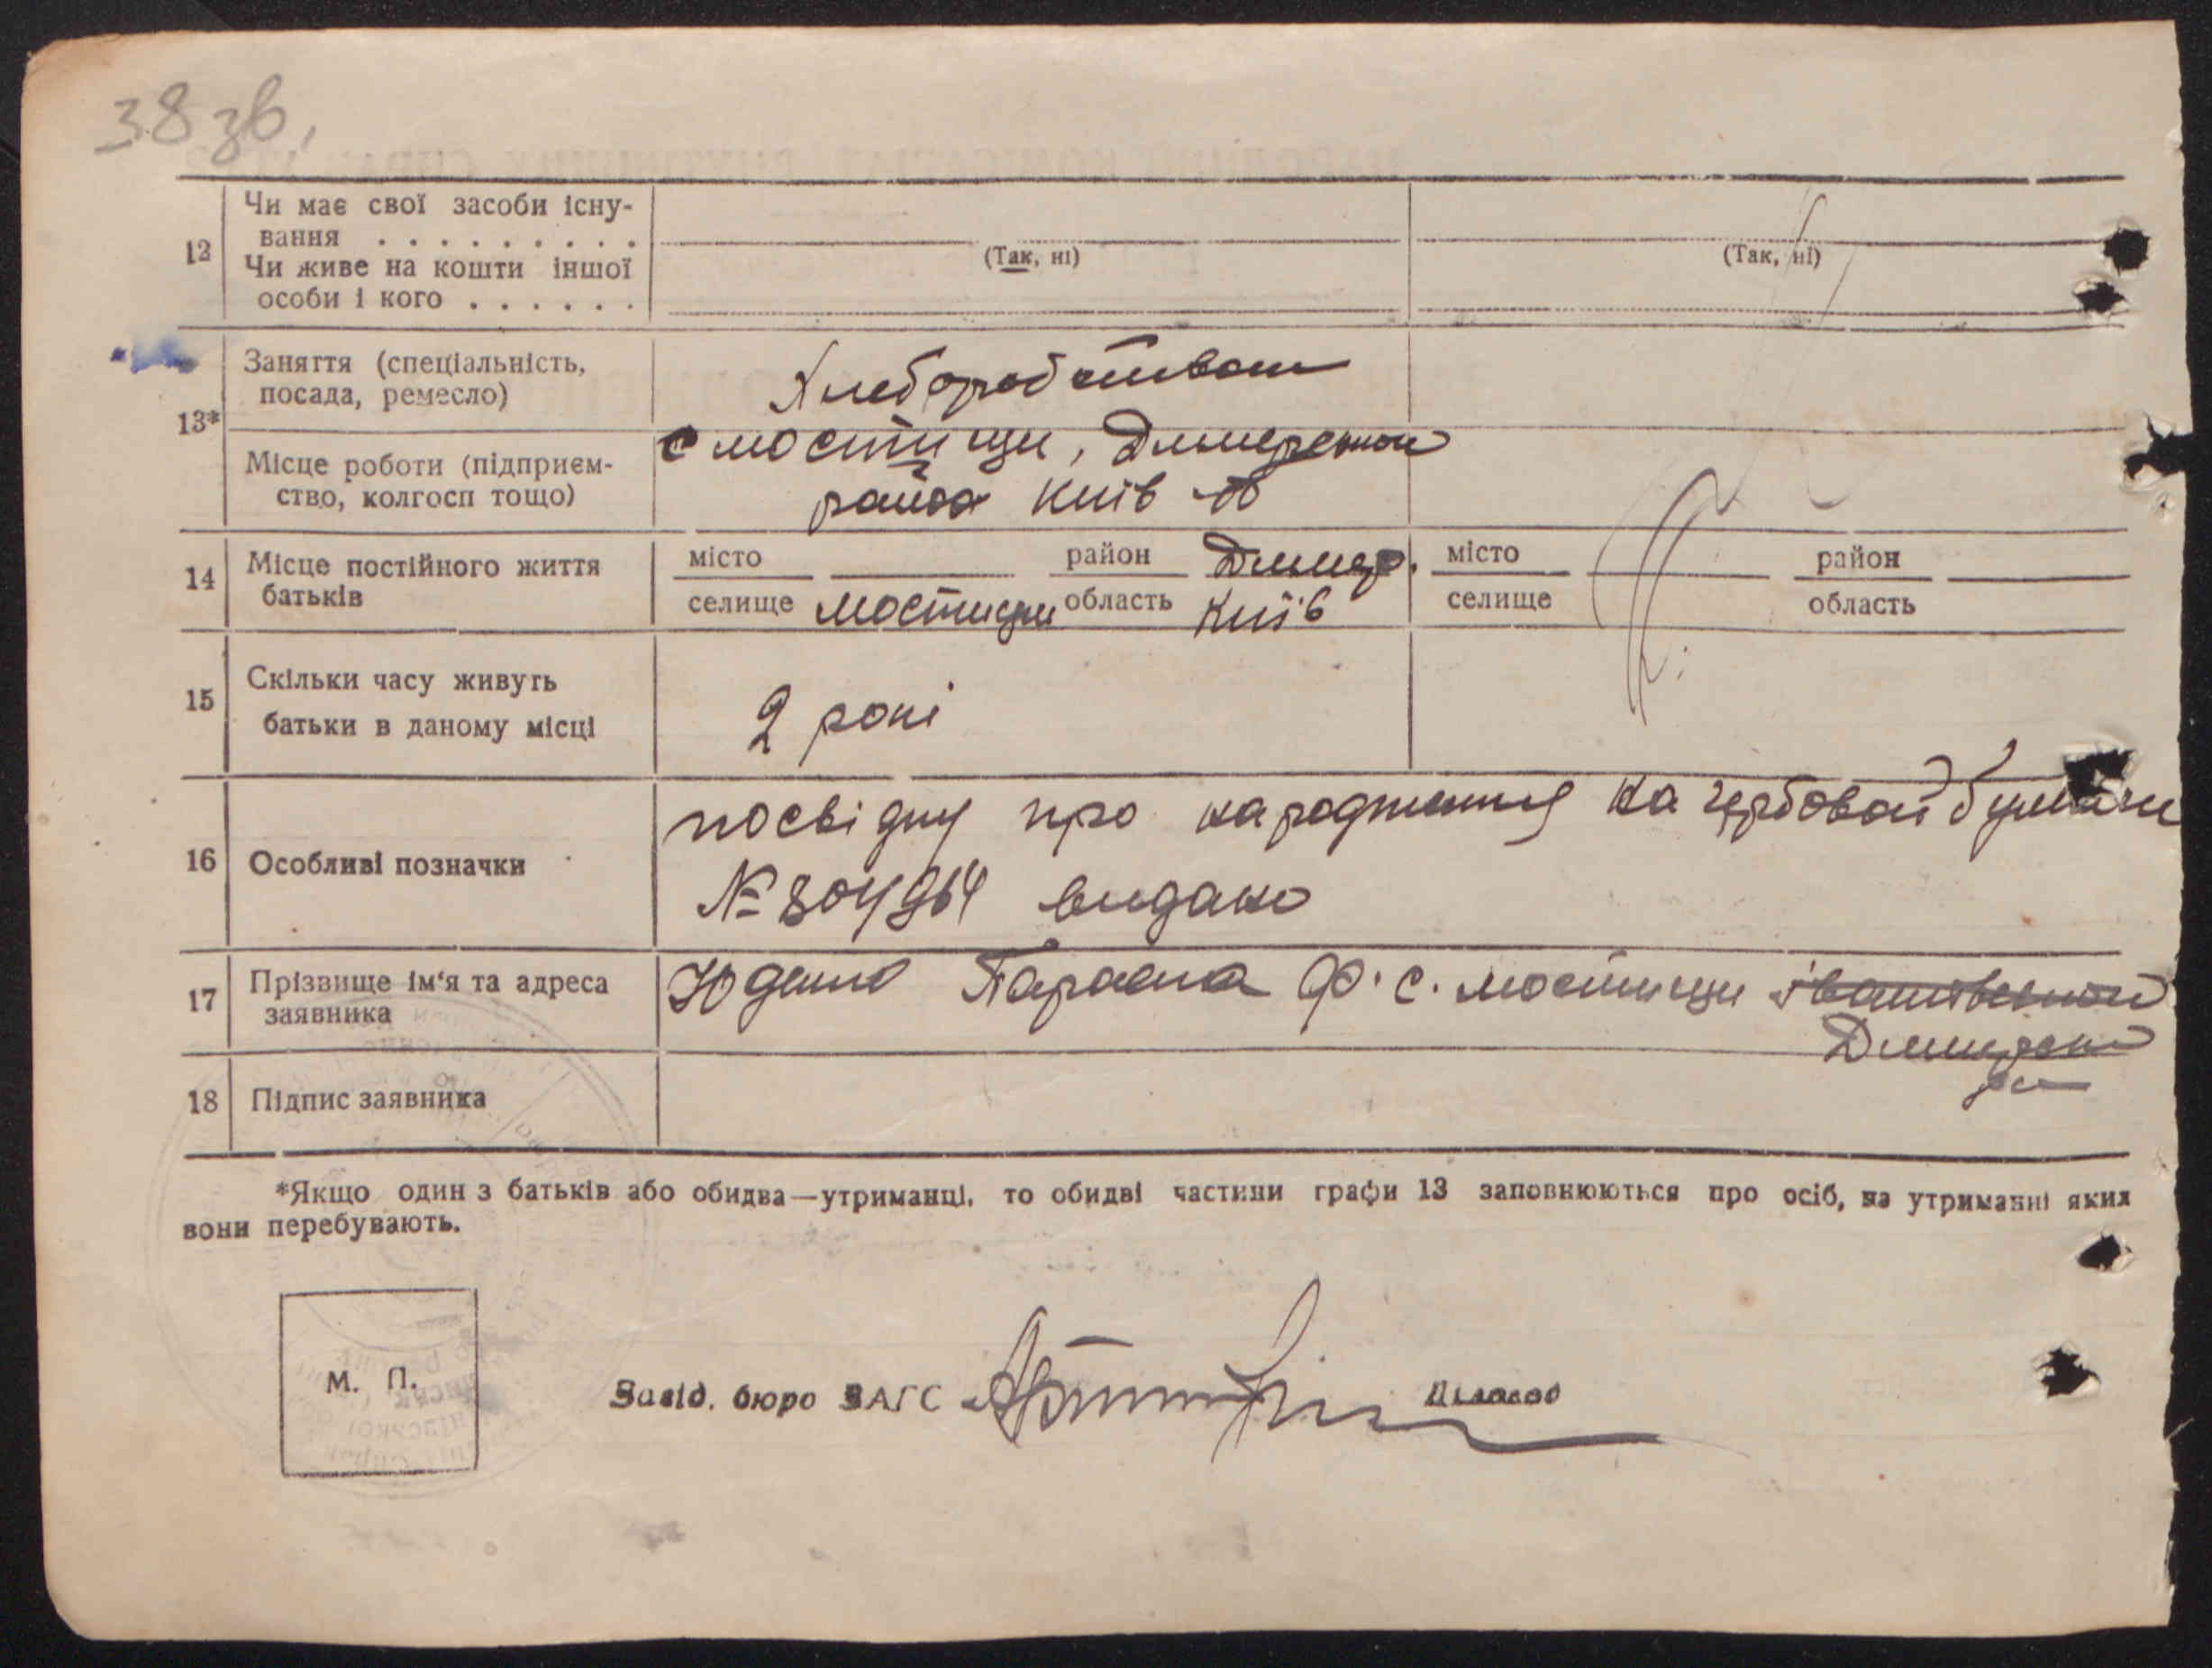 38 зв.
12
Чи має свої засоби існу-
вання . . . . . . . . .
Чи живе на кошти іншої
особи і кого . . . . . .
(Так, ні)
(Так, ні)
13*
Заняття (спеціальність,
посада, ремесло)
Хлеборобством
Місце роботи (підприєм-
ство, колгосп тощо)
с мостищи, Дымерской
района Київ об
14
Місце постійного життя
батьків
місто район Дымер.
селище мостищи область Київ
місто район
селище область
15
Скільки часу живуть
батьки в даному місці
2 роки
16
Особливі позначки
посвідку про народження на гербовой бумаги
№ 804964 видано
17
Прізвище ім'я та адреса
заявника
Параска Ф. с. мостищи
Дымерской
18
Підпис заявника
*Якщо один з батьків або обидва—утриманці, то обидві частини графи 13 заповнюються про осіб, на утриманні яких
вони перебувають.
М. П.
Завід. бюро ЗАГС Діловод